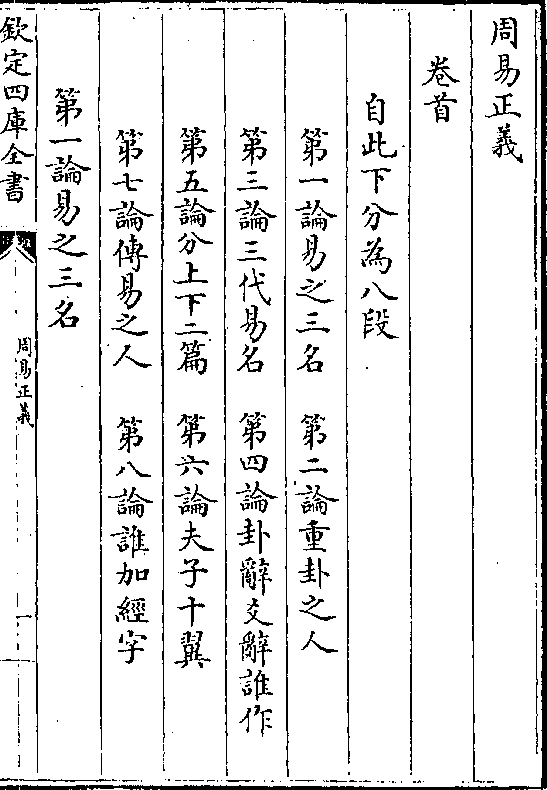 周易正義
卷首
自此下分為八段
第一論易之三名　第二論重卦之人
第三論三代易名　第四論卦辭爻辭誰作
第五論分上下二篇　第六論夫子十翼
第七論傳易之人　第八論誰加經字
第一論易之三名
欽定四庫全書
周易正義
一